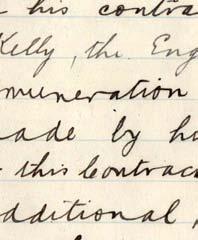 his contra
Kelly, the Eng
muneration
ade by h
this Contrac
dditional,